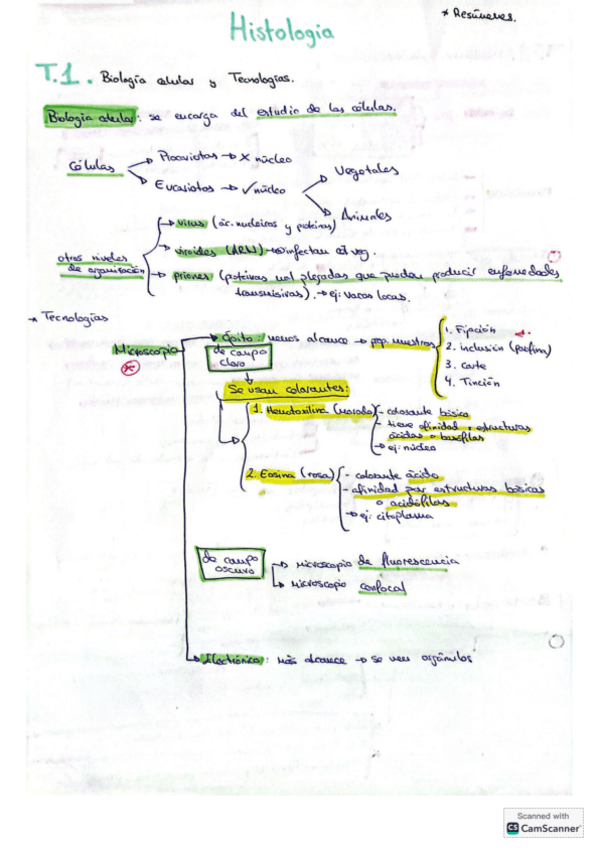 * Resúmenes.
Histologia
T.1. Biología celular y Tecnologías.
Biología celular: se encarga del estudio de las células.
Células
Procariotas → x núcleo
Eucariotas → ✓ núcleo
Vegetales
Animales
otros niveles de organización
→ virus (ác. nucleicos y proteínas)
→ viroides (ARN) → infectan al veg.
→ priones (proteínas mal plegadas que pueden producir enfermedades
transmisivas). → ej: vacas locas.
* Tecnologías
Microscopio
→ óptico: menos alcance → prep. muestras
1. Fijación
2. inclusión (parafina)
3. corte
4. Tinción
de campo claro
Se usan colorantes:
1. Hematoxilina (morado)
- colorante básico
- tiene afinidad x estructuras
ácidas o basófilas
→ ej: núcleo
2. Eosina (rosa)
- colorante ácido
- afinidad por estructuras básicas
o acidófilas
→ ej: citoplasma
de campo oscuro
→ microscopio de fluorescencia
→ microscopio confocal
→ Electrónico: más alcance → se ven orgánulos
Scanned with
CS CamScanner